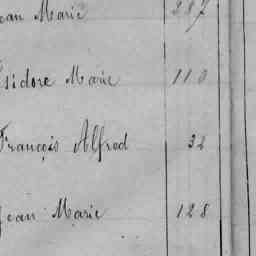 ean Marie 287
Isidore Marie 110
François Alfred 32
Jean Marie 128